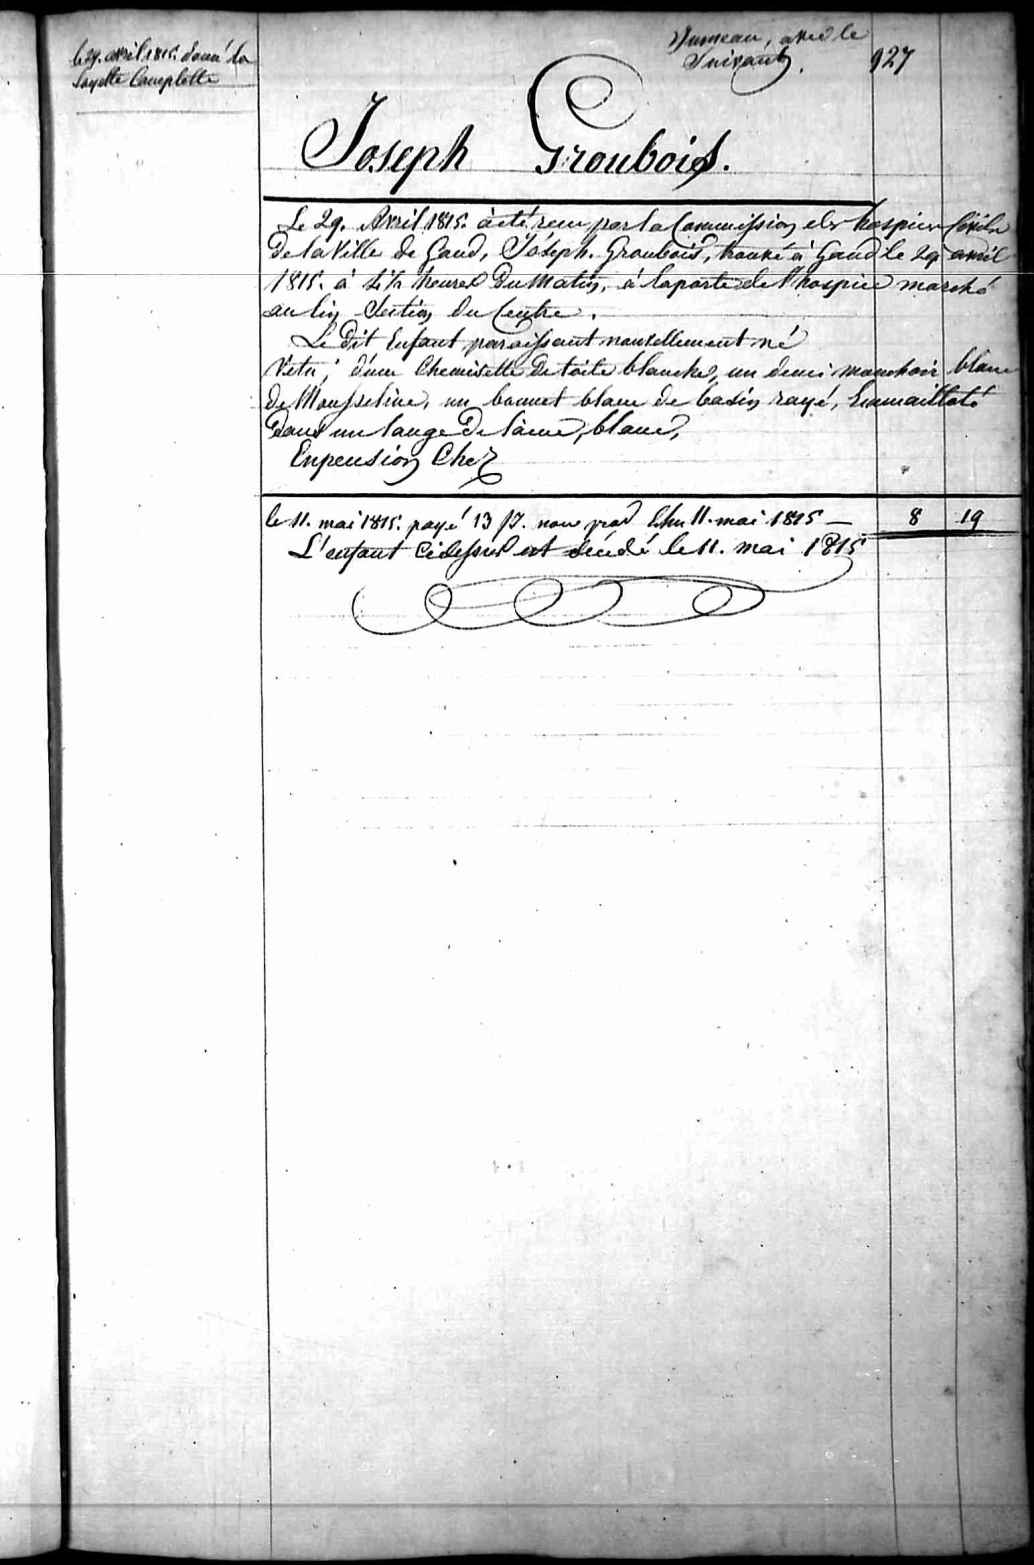 le 29. avril 1815. donné la
Layette Complette
Jumeau, avec le
Suivant.
927
Joseph Groubois.
Le 29. Avril 1815. à été recu par la Commission des hospices Civils
De la Ville de Gand, Joseph. Groubois, trouvé à Gand le 29 avril
1815. à 4½ heures Du Matin, à la porte de l'hospice marché
au lin Section du Centre.
Le Dit Enfant paraissant nouvellement né
Vetu, d'une Chemisette De toile blanche, un demi mouchoir blanc
de Mousseline, un bonnet blanc de basin rayé, Emmailloté
dans un lange De laine, blanc,
Enpension Chez
le 11. mai 1815. payé 13 js. nou 11. mai 1815 — 8 19
L'enfant Cidessus est décédé le 11. mai 1815